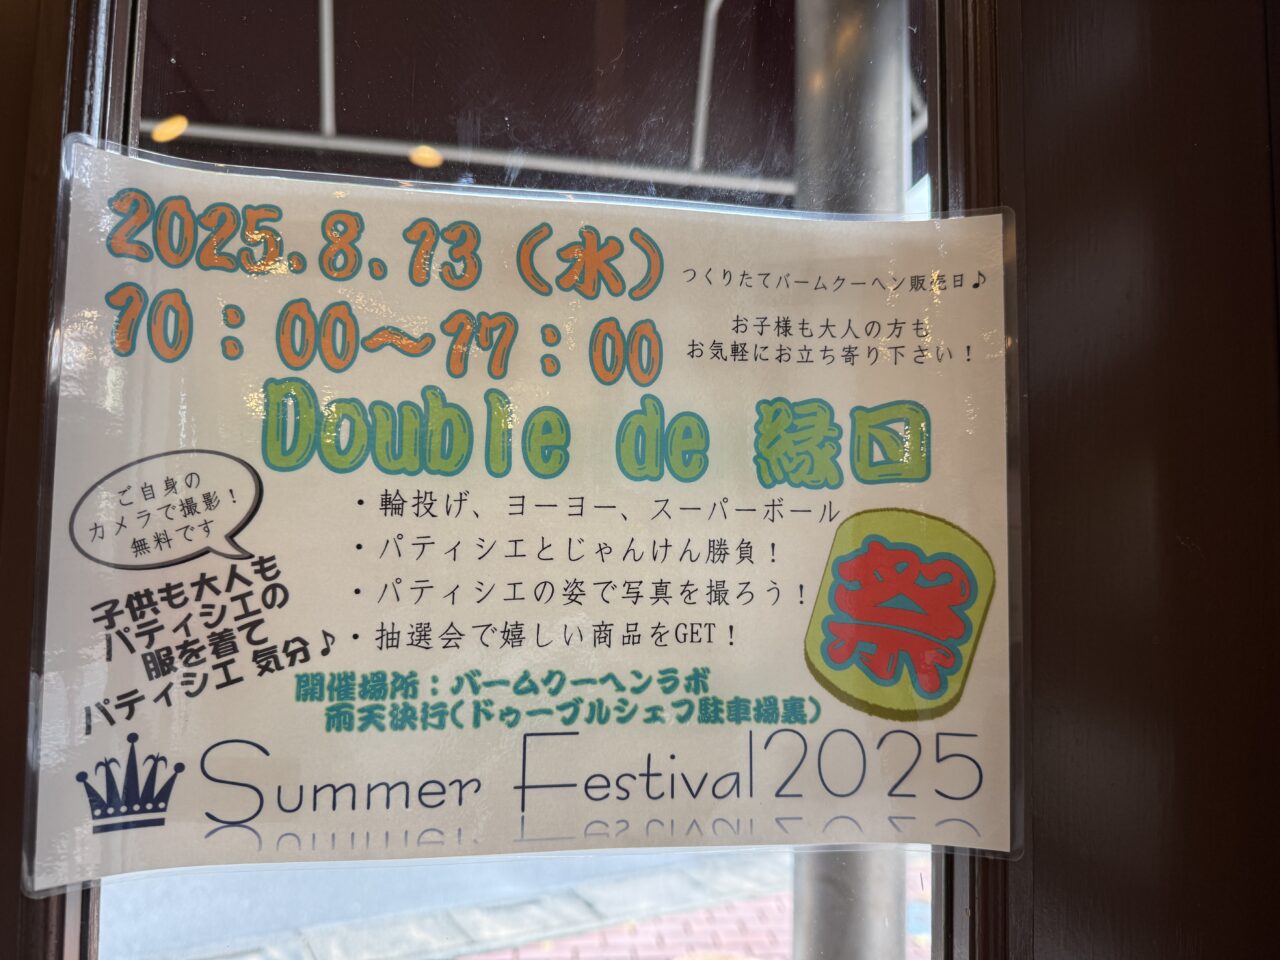 2025.8.13（水）
10：00～17：00
つくりたてバームクーヘン販売日♪
お子様も大人の方も
お気軽にお立ち寄り下さい！
Double de 縁日
ご自身の
カメラで撮影！
無料です
・輪投げ、ヨーヨー、スーパーボール
・パティシエとじゃんけん勝負！
・パティシエの姿で写真を撮ろう！
・抽選会で嬉しい商品をGET！
祭
子供も大人も
パティシエの
服を着て
パティシエ 気分♪
開催場所：バームクーヘンラボ
雨天決行(ドゥーブルシェフ駐車場裏)
Summer Festival2025